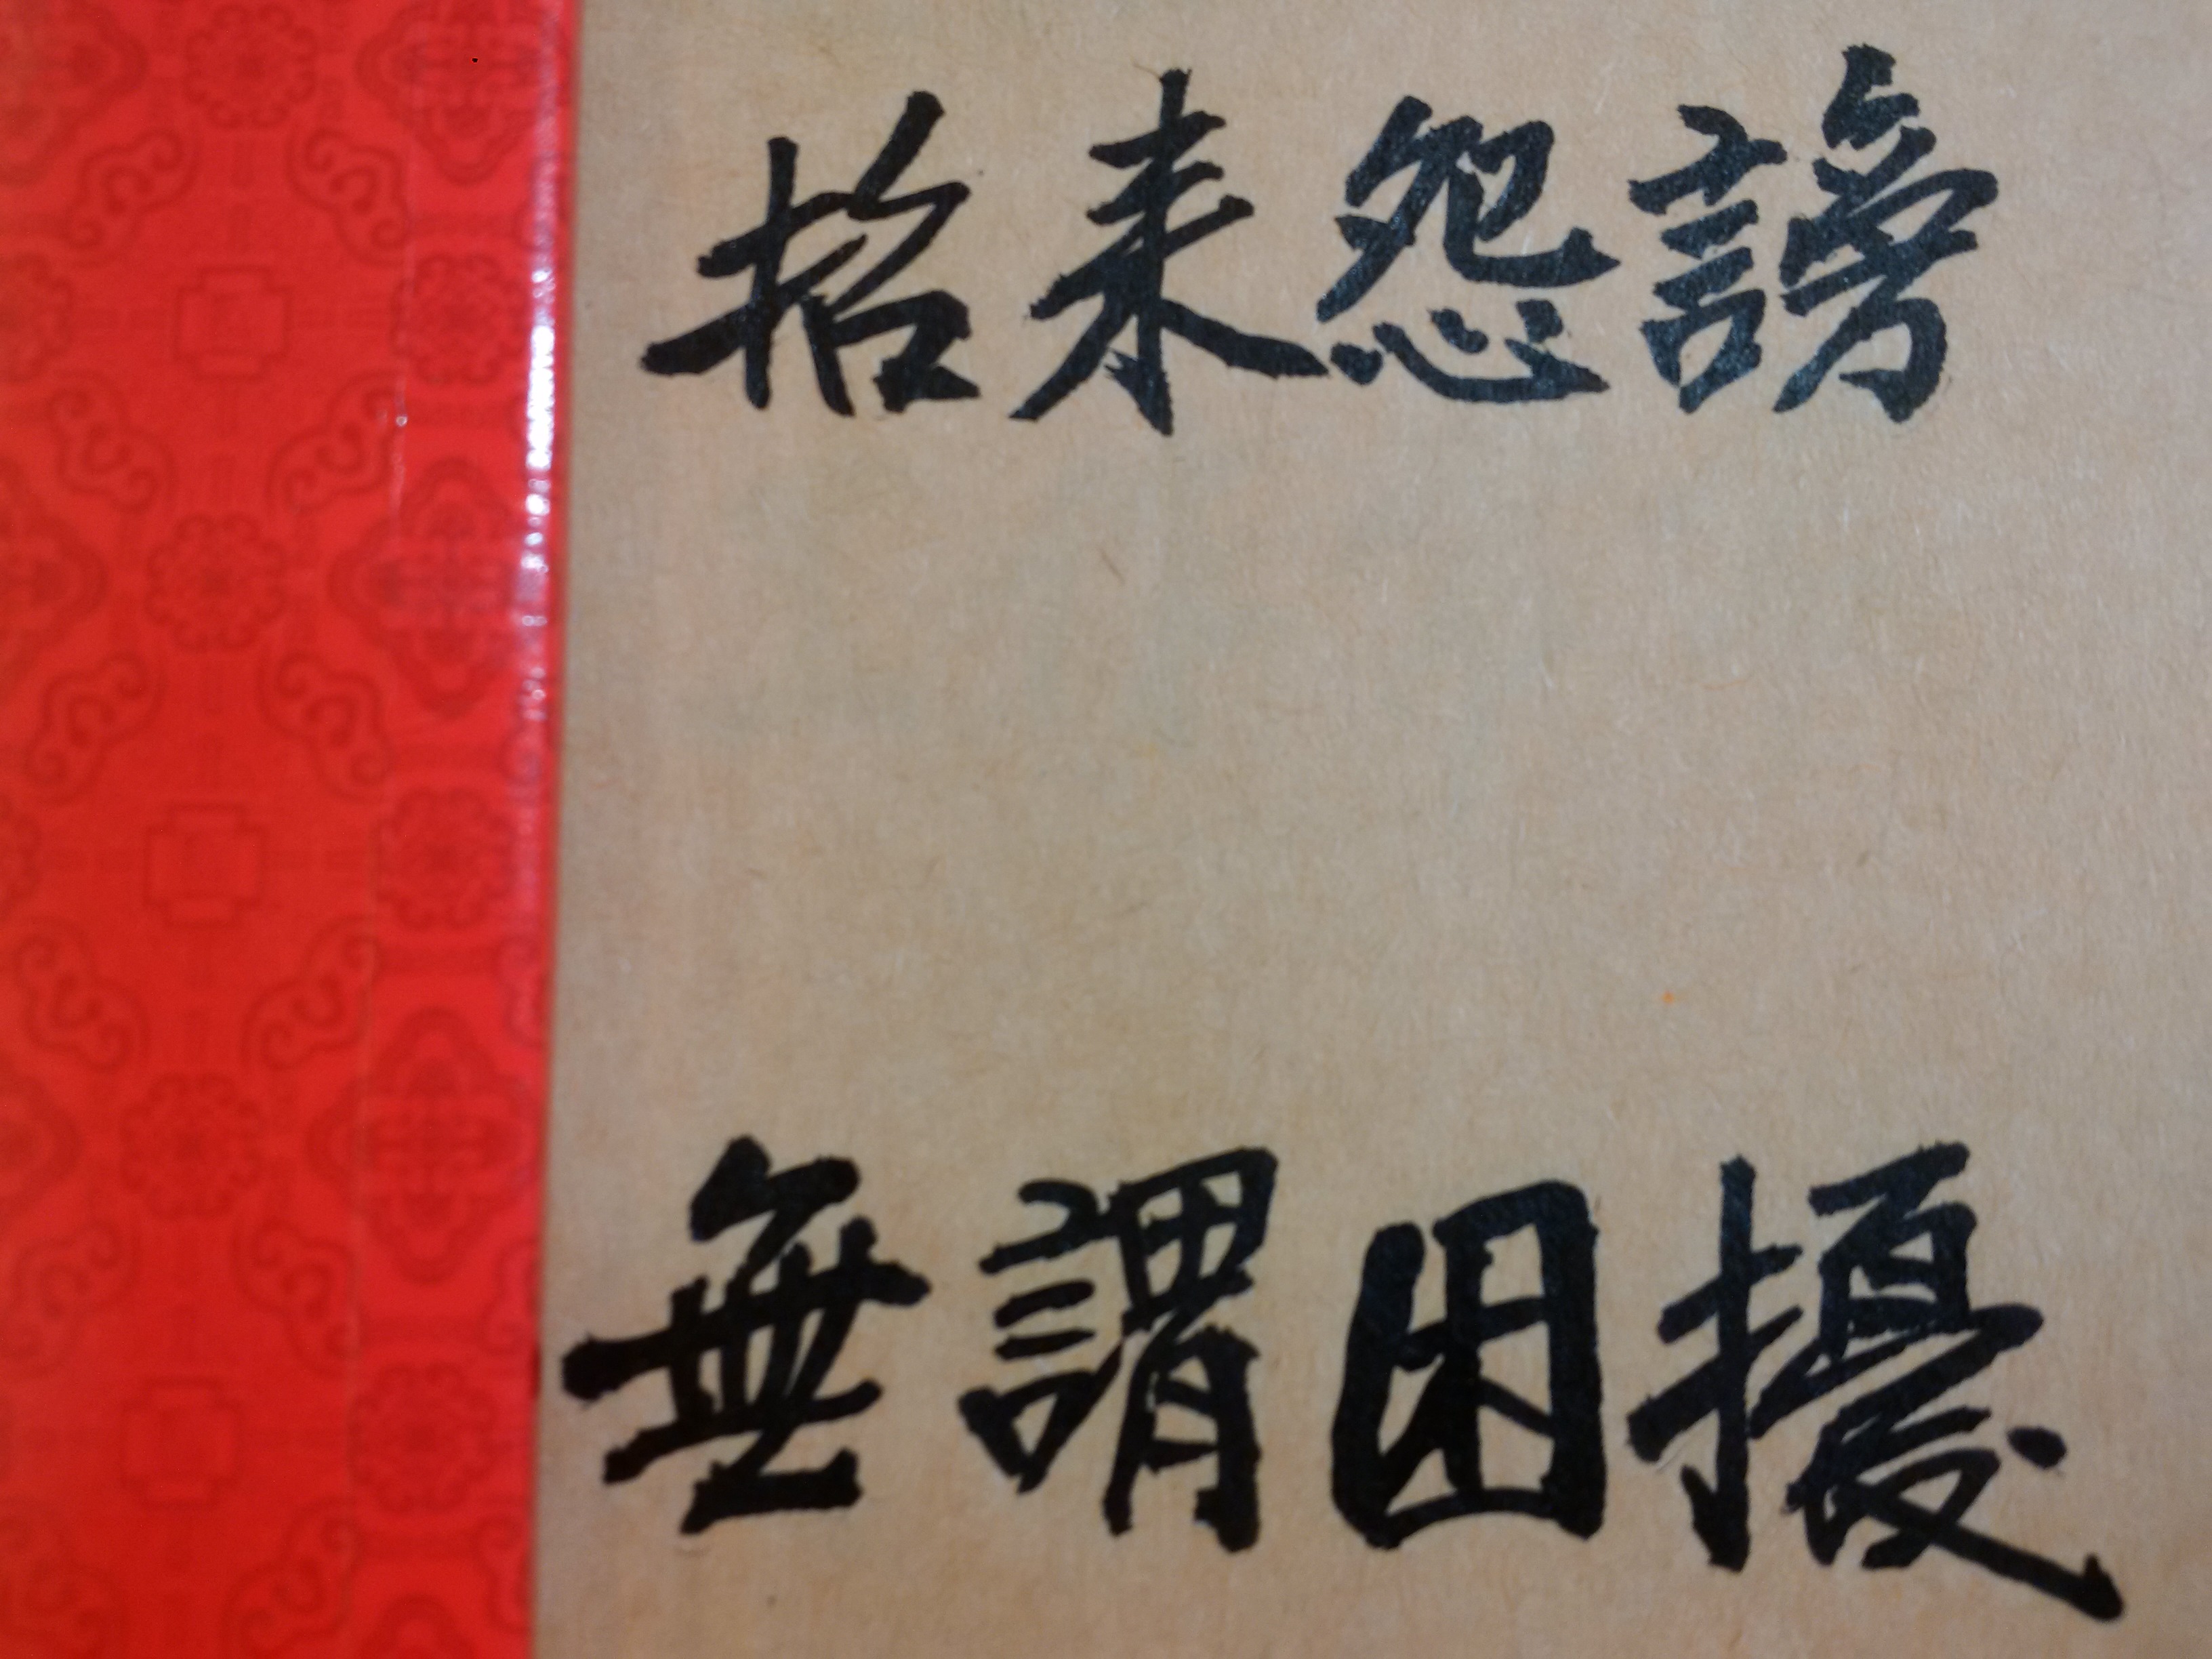 招来怨謗
無謂困擾